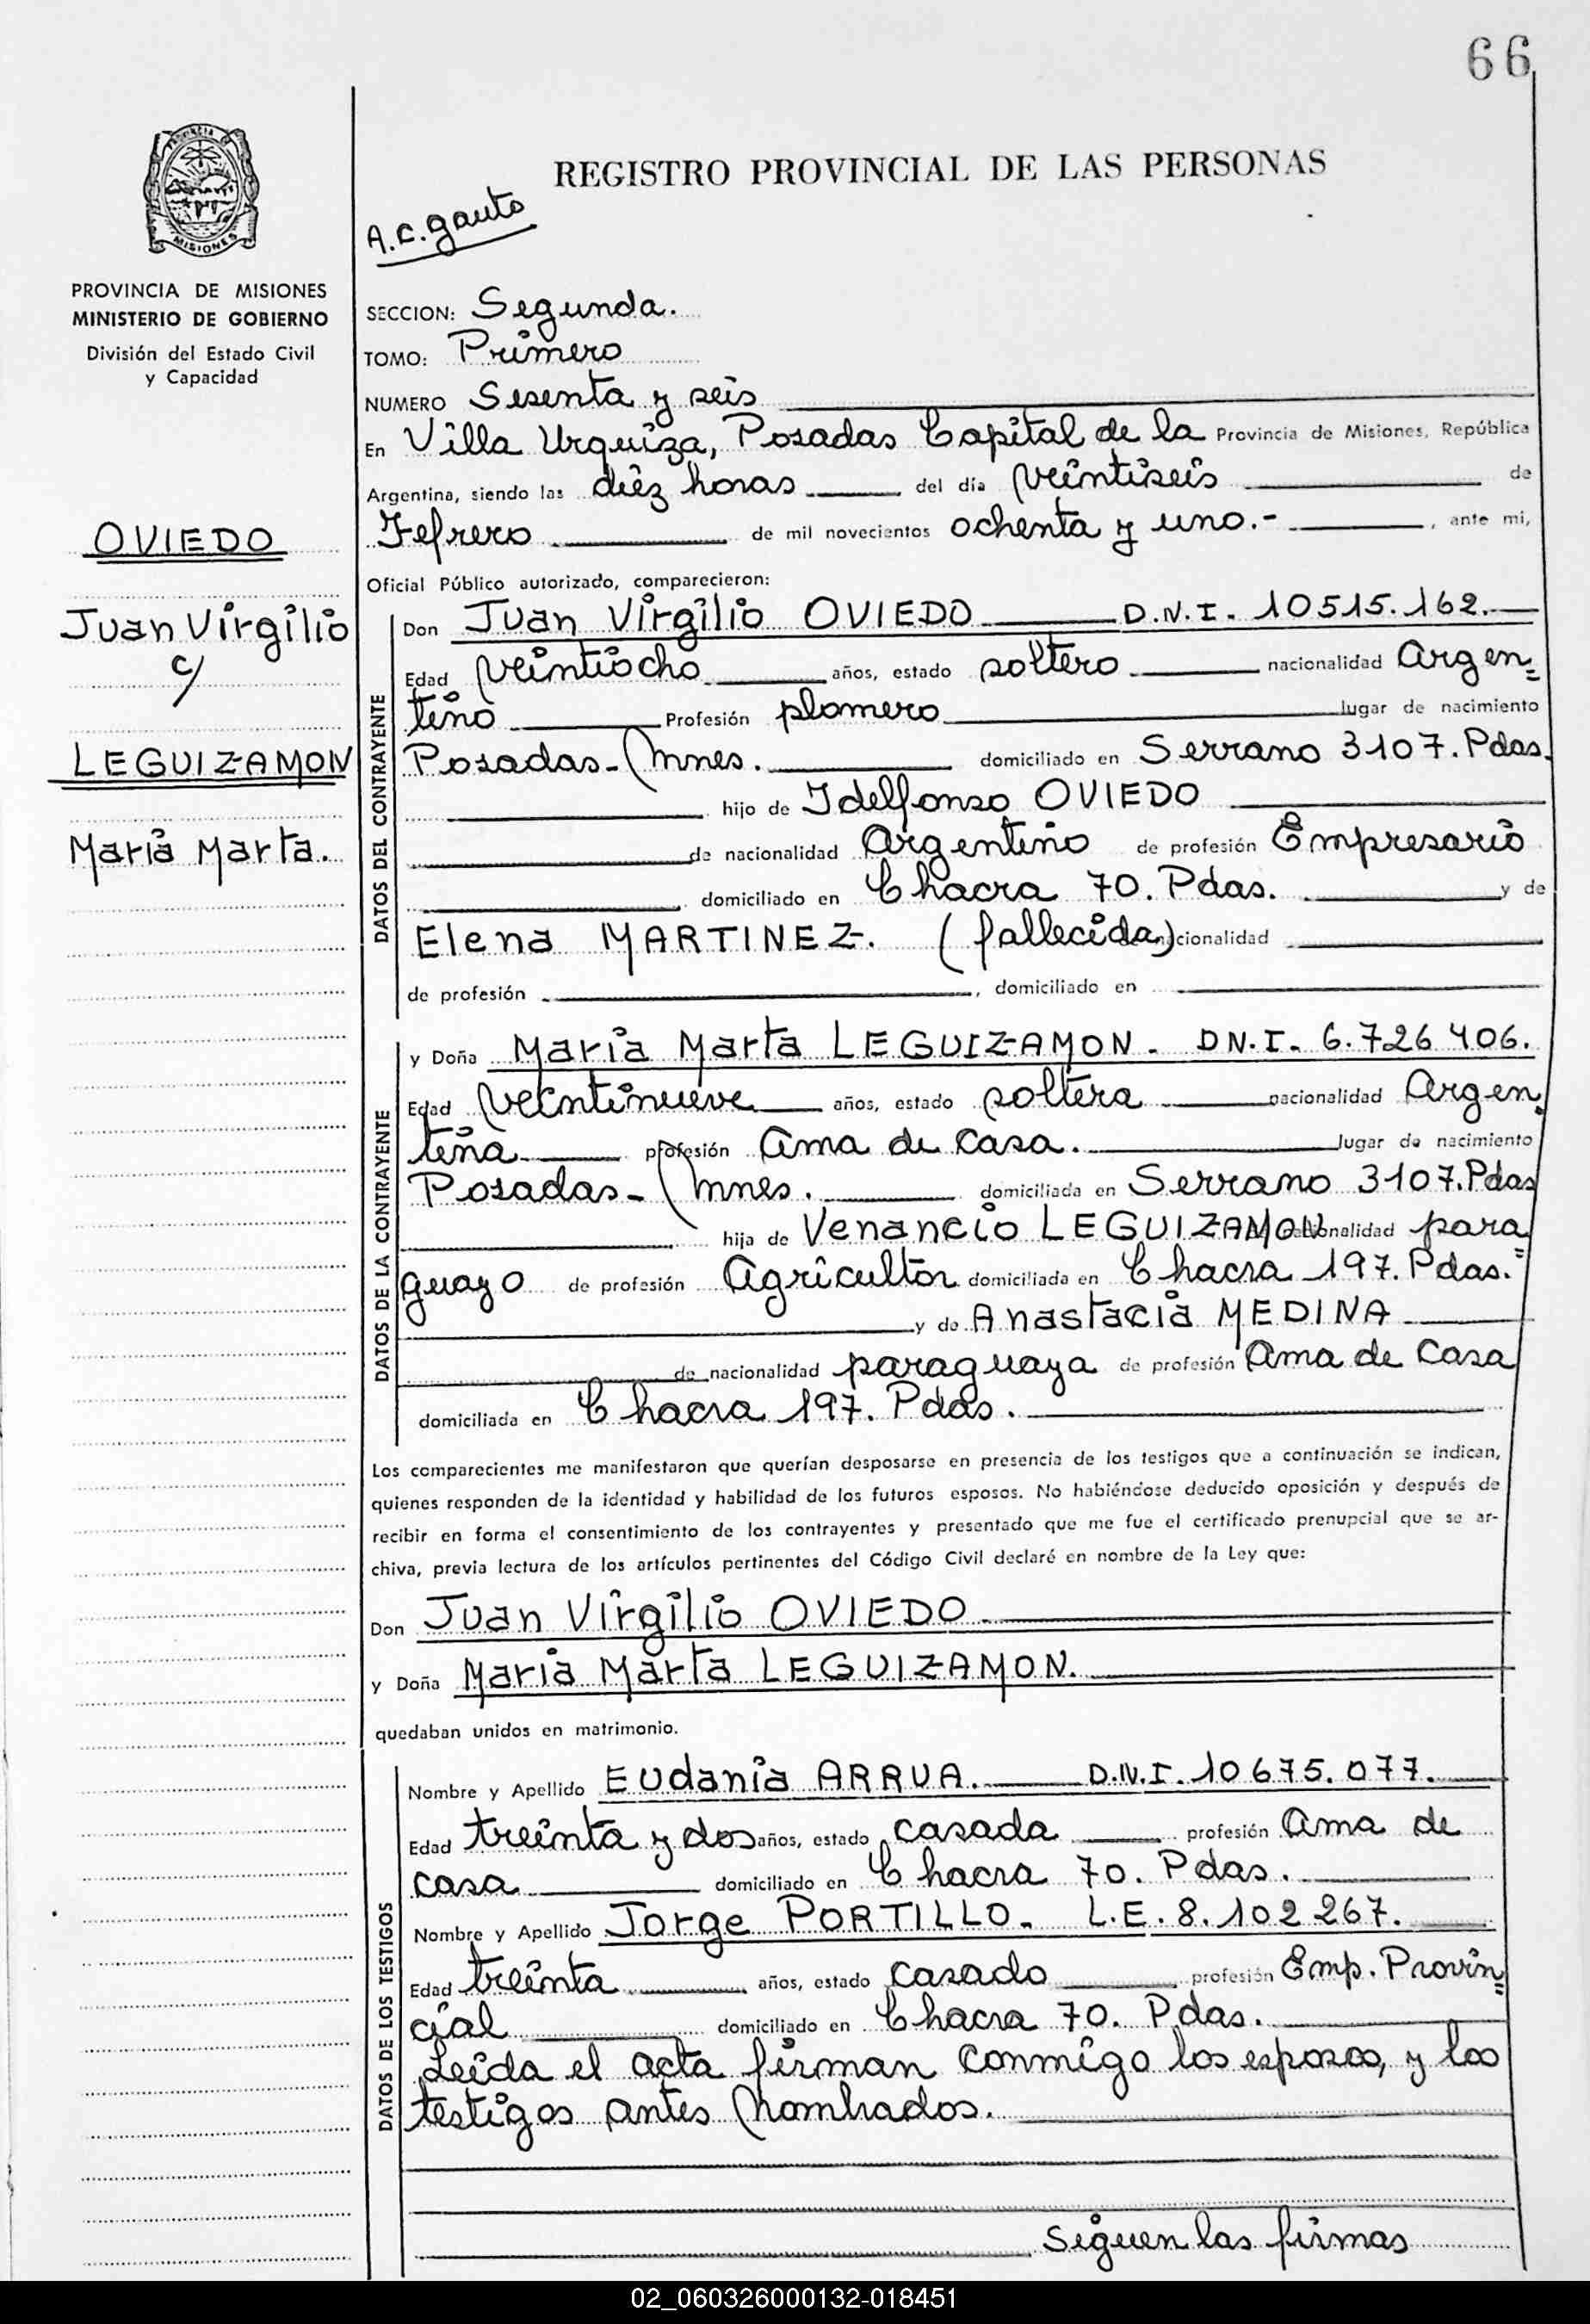 66
REGISTRO PROVINCIAL DE LAS PERSONAS
A.C. gauto
PROVINCIA DE MISIONES
PROVINCIA DE MISIONES
MINISTERIO DE GOBIERNO
División del Estado Civil
y Capacidad
OVIEDO
Juan Virgilio
c/
LEGUIZAMON
Maria Marta.
SECCION: Segunda.
TOMO: Primero
NUMERO Sesenta y seis
En Villa Urquiza, Posadas Capital de la Provincia de Misiones, República
Argentina, siendo las diez horas del día veintiseis de
Febrero de mil novecientos ochenta y uno.- , ante mi,
Oficial Público autorizado, comparecieron:
DATOS DEL CONTRAYENTE
Don Juan Virgilio OVIEDO D.N.I. 10515.162.
Edad veintiocho años, estado soltero nacionalidad Argen=
tino Profesión plomero lugar de nacimiento
Posadas-Mnes. domiciliado en Serrano 3107. Pdas.
hijo de Idelfonso OVIEDO
de nacionalidad Argentino de profesión Empresario
domiciliado en Chacra 70. Pdas. y de
Elena MARTINEZ. (fallecida) cionalidad
de profesión , domiciliado en
DATOS DE LA CONTRAYENTE
y Doña Maria Marta LEGUIZAMON. DN.I. 6.726 406.
Edad veintinueve años, estado soltera nacionalidad Argen=
tina profesión Ama de casa. lugar de nacimiento
Posadas-Mnes. domiciliada en Serrano 3107. Pdas
hija de Venancio LEGUIZAMON nalidad para=
guayo de profesión Agricultor domiciliada en Chacra 197. Pdas.
y de Anastacia MEDINA
de nacionalidad paraguaya de profesión Ama de Casa
domiciliada en Chacra 197. Pdas.
Los comparecientes me manifestaron que querían desposarse en presencia de los testigos que a continuación se indican,
quienes responden de la identidad y habilidad de los futuros esposos. No habiéndose deducido oposición y después de
recibir en forma el consentimiento de los contrayentes y presentado que me fue el certificado prenupcial que se ar-
chiva, previa lectura de los artículos pertinentes del Código Civil declaré en nombre de la Ley que:
Don Juan Virgilio OVIEDO
y Doña Maria Marta LEGUIZAMON.
quedaban unidos en matrimonio.
DATOS DE LOS TESTIGOS
Nombre y Apellido Eudania ARRUA. D.N.I. 10675.077.
Edad treinta y dos años, estado casada profesión Ama de
casa domiciliado en Chacra 70. Pdas.
Nombre y Apellido Jorge PORTILLO. L.E. 8.102 267.
Edad treinta años, estado casado profesión Emp. Provin=
cial domiciliado en Chacra 70. Pdas.
Leída el acta firman conmigo los esposos, y los
testigos antes nombrados.
Siguen las firmas
02_060326000132-018451